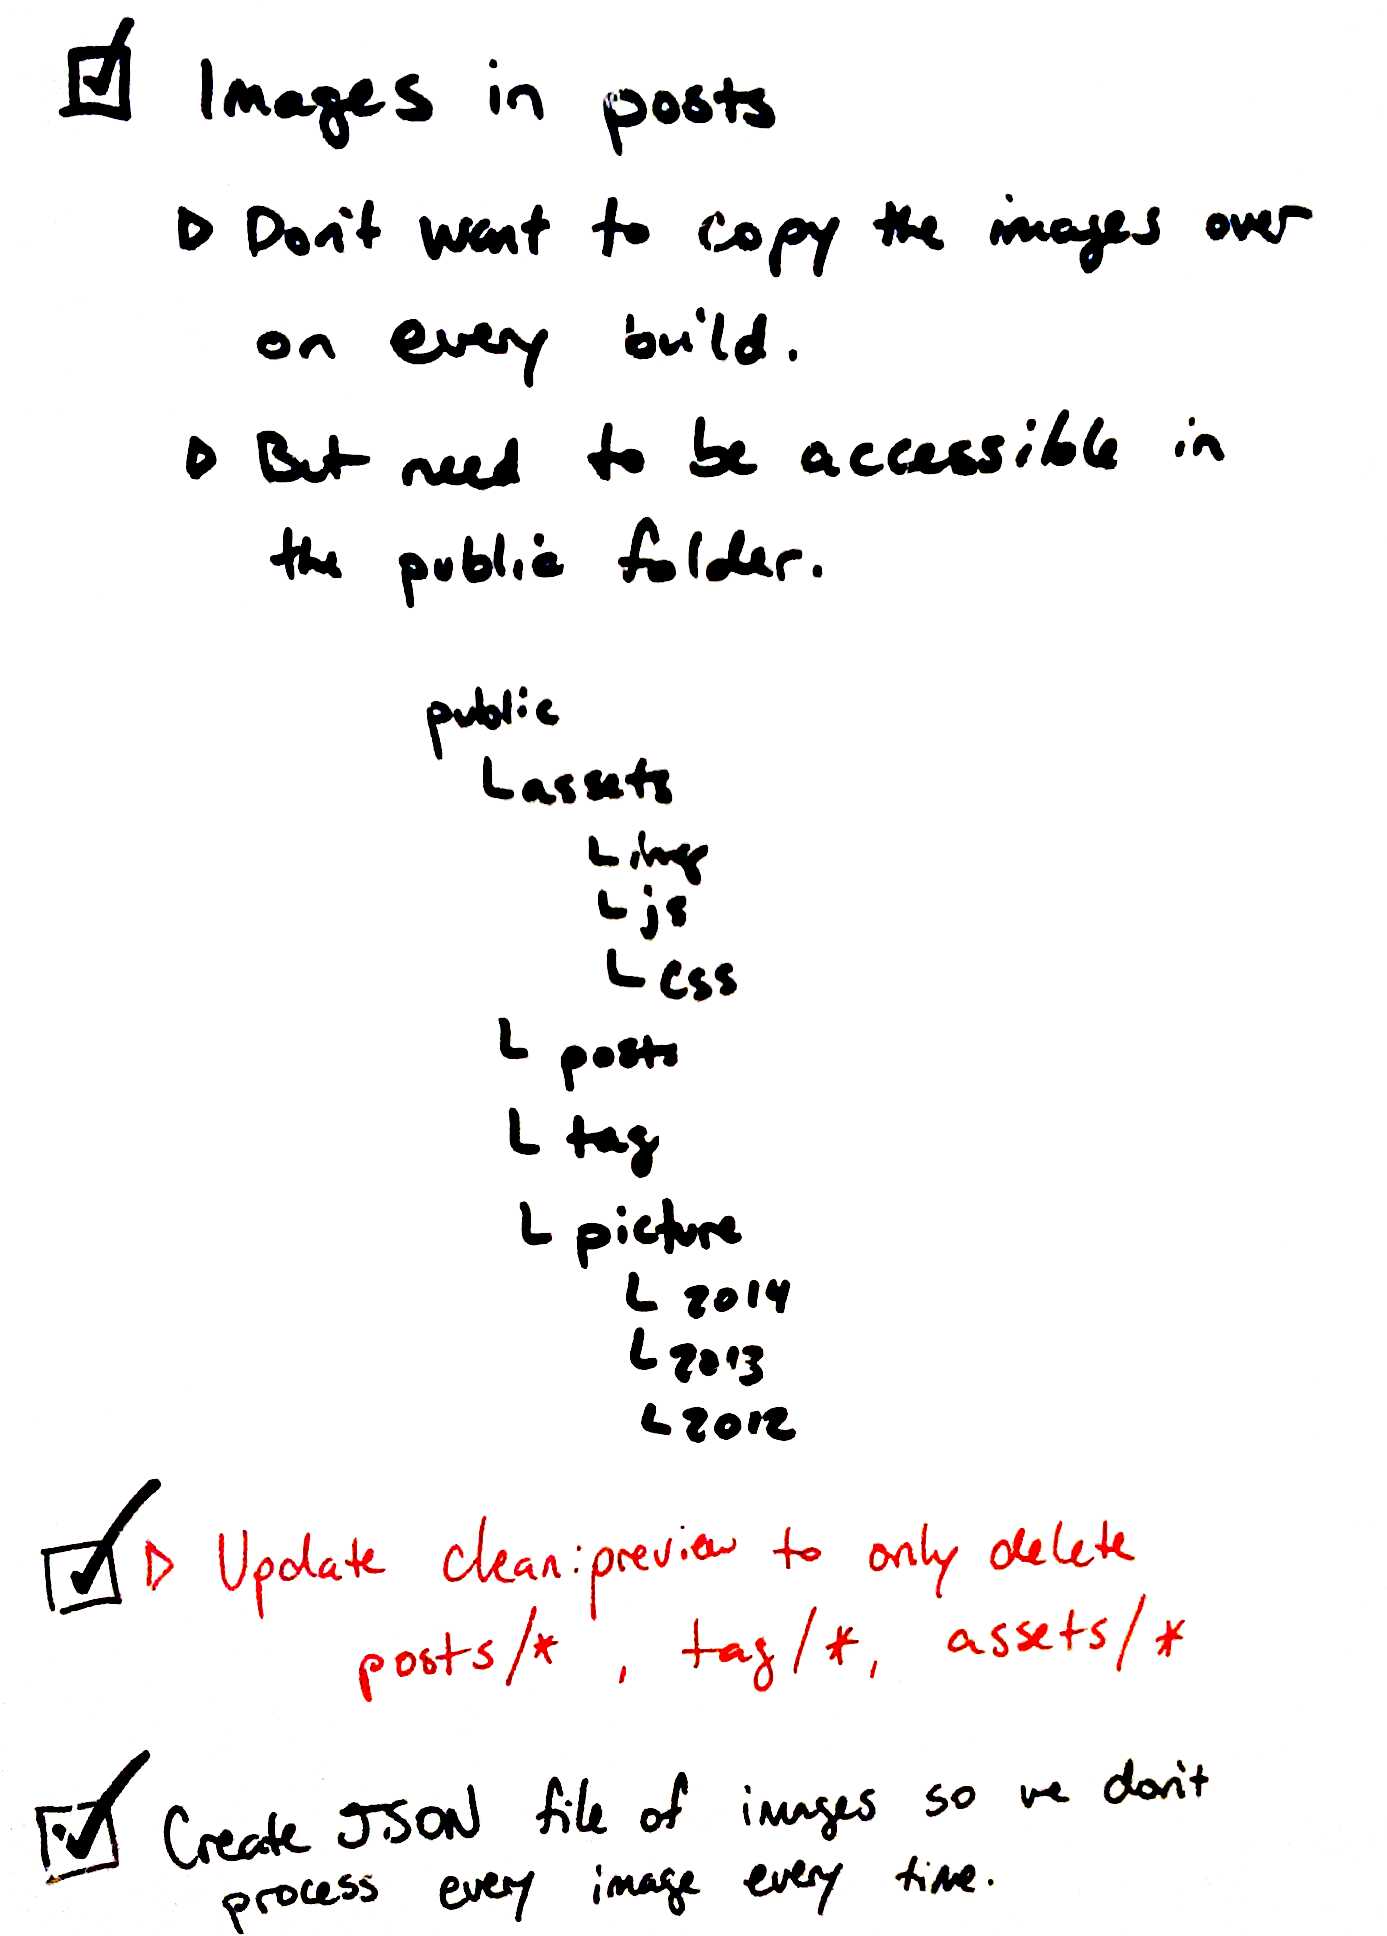 Images in posts
Don't want to copy the images over
on every build.
But need to be accessible in
the public folder.
public
assets
img
js
css
posts
tag
picture
2014
2013
2012
Update clean:preview to only delete
posts/*, tag/*, assets/*
Create JSON file of images so we don't
process every image every time.